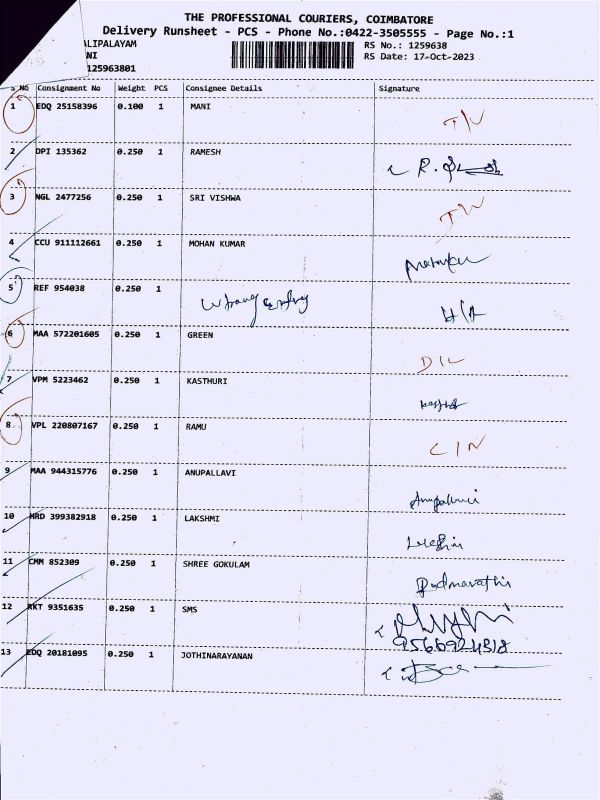 THE PROFESSIONAL COURIERS, COIMBATORE
Delivery Runsheet - PCS - Phone No.:0422-3505555 - Page No.:1
ALIPALAYAM RS No.: 1259638
NI RS Date: 17-Oct-2023
125963801
S No Consignment No Weight PCS Consignee Details Signature
1 EDQ 25158396 0.100 1 MANI
2 DPI 135362 0.250 1 RAMESH
3 NGL 2477256 0.250 1 SRI VISHWA
4 CCU 911112661 0.250 1 MOHAN KUMAR
5 REF 954038 0.250 1
6 MAA 572201605 0.250 1 GREEN
D/L
7 VPM 5223462 0.250 1 KASTHURI
8 VPL 220807167 0.250 1 RAMU
C/N
9 MAA 944315776 0.250 1 ANUPALLAVI
Anupallavi
10 HRD 399382918 0.250 1 LAKSHMI
11 CMM 852309 0.250 1 SHREE GOKULAM
Padmavathi
12 RKT 9351635 0.250 1 SMS
9566924318
13 EDQ 20181095 0.250 1 JOTHINARAYANAN